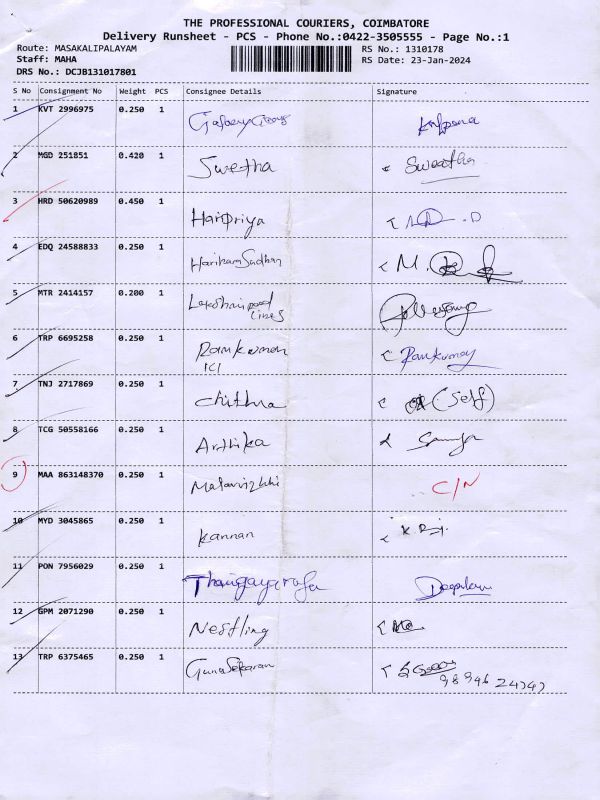 THE PROFESSIONAL COURIERS, COIMBATORE
Delivery Runsheet - PCS - Phone No.:0422-3505555 - Page No.:1
Route: MASAKALIPALAYAM RS No.: 1310178
Staff: MAHA RS Date: 23-Jan-2024
DRS No.: DCJB131017801
S No Consignment No Weight PCS Consignee Details Signature
1 KVT 2996975 0.250 1
2 MGD 251851 0.420 1 Swetha Sweatha
3 HRD 50620989 0.450 1 Haripriya
4 EDQ 24588833 0.250 1 Hariharn Sadhan M.
5 MTR 2414157 0.200 1
6 TRP 6695258 0.250 1 Ramkumar Ramkumar
ICI
7 TNJ 2717869 0.250 1 Chithra (Self)
8 TCG 50558166 0.250 1 Arthika
9 MAA 863148370 0.250 1 Malarvizhi C/N
10 MYD 3045865 0.250 1 Kannan
11 PON 7956029 0.250 1 Thangayaraja
12 GPM 2071290 0.250 1 Nestling
13 TRP 6375465 0.250 1 GunaSekaran